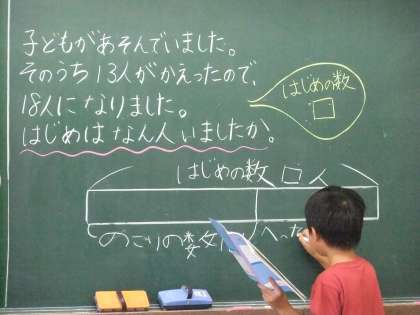 子どもがあそんでいました。
そのうち13人がかえったので、
18人になりました。
はじめはなん人いましたか。
はじめの数
□
はじめの数 □人
のこりの数
へった